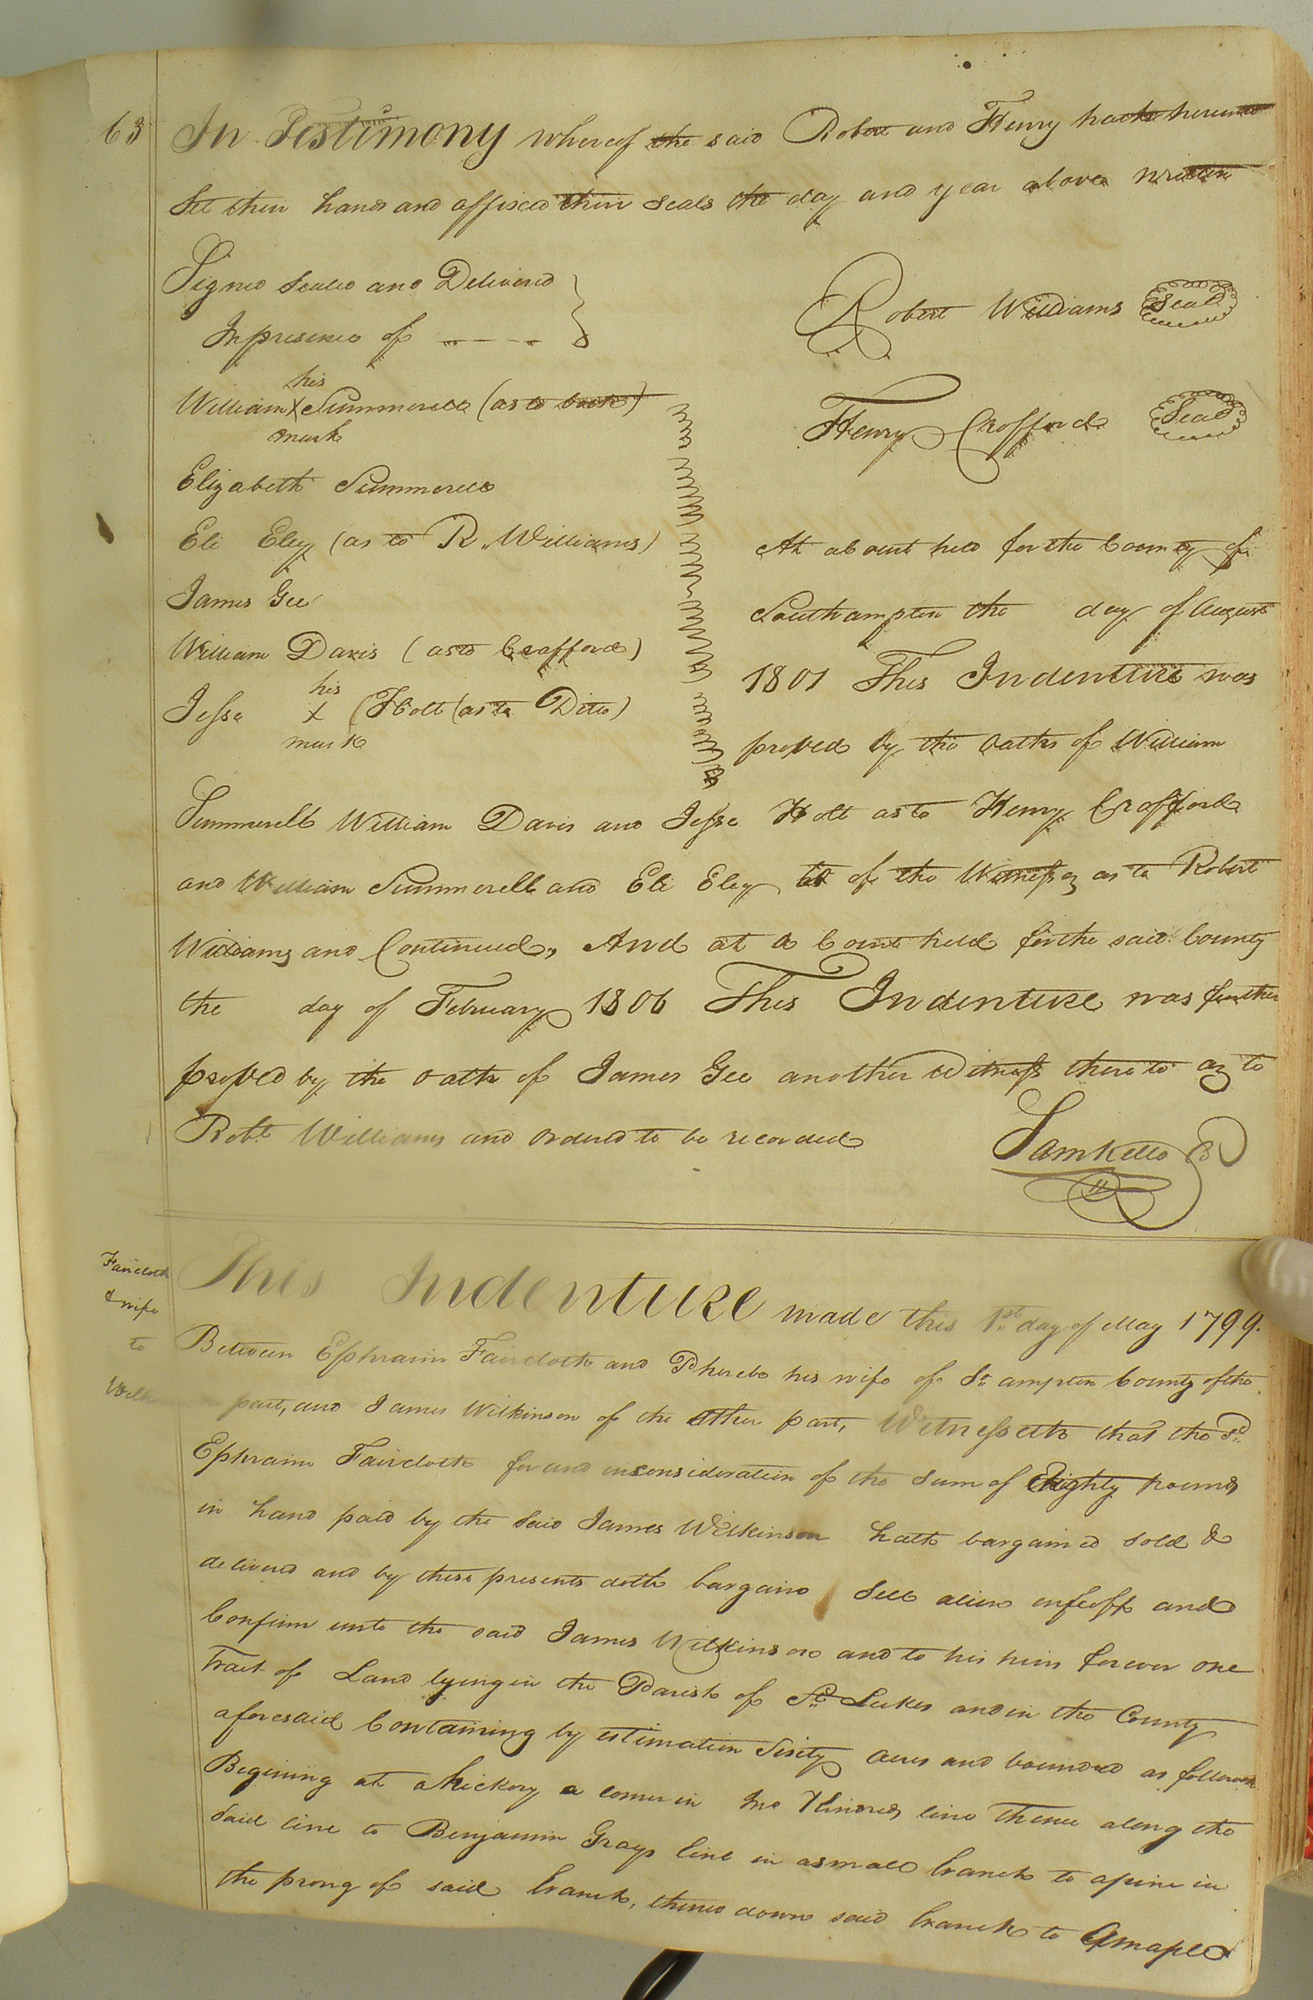 63
In Testimony whereof the said Robert and Henry hath hereunto
Set their hands and affixed their seals the day and year above written
Signed Sealed and Delivered
In presence of
Robert Williams Seal
his
William X Summerell (as to both)
mark
Henry Crafford Seal
Elizabeth Summerell
Eli Eley (as to R. Williams)
James Gee
William Davis (as to Crafford)
his
Jesse X Holt (as to Ditto)
mark
At a Court held for the County of
Southampton the day of August
1801 This Indenture was
proved by the oaths of William
Summerell William Davis and Jesse Holt as to Henry Crafford
and William Summerell and Eli Eley two of the Witnesses as to Robert
Williams and Continued, And at a Court held for the said County
the day of February 1806 This Indenture was further
proved by the oath of James Gee another Witness thereto as to
Robt. Williams and ordered to be recorded
Sam Kello C
Faircloth
& wife
to
This Indenture made this 1st day of May 1799.
Between Ephraim Faircloth and Pherebe his wife of So. ampton County of the
part, and James Wilkinson of the other part, Witnesseth that the sd.
Ephraim Faircloth for and in consideration of the Sum of Eighty pounds
in hand paid by the said James Wilkinson hath bargained sold &
delivered and by these presents doth bargain Sell alien enfeoff and
Confirm unto the said James Wilkinson and to his heirs forever one
Tract of Land lying in the Parish of St. Lukes and in the County
aforesaid Containing by estimation Sixty acres and bounded as followeth
Begining at a hickory a corner in line Thence along the
said line to Benjamin Grays line in a small branch to a pine in
the prong of said branch, thence down said branch to a maple